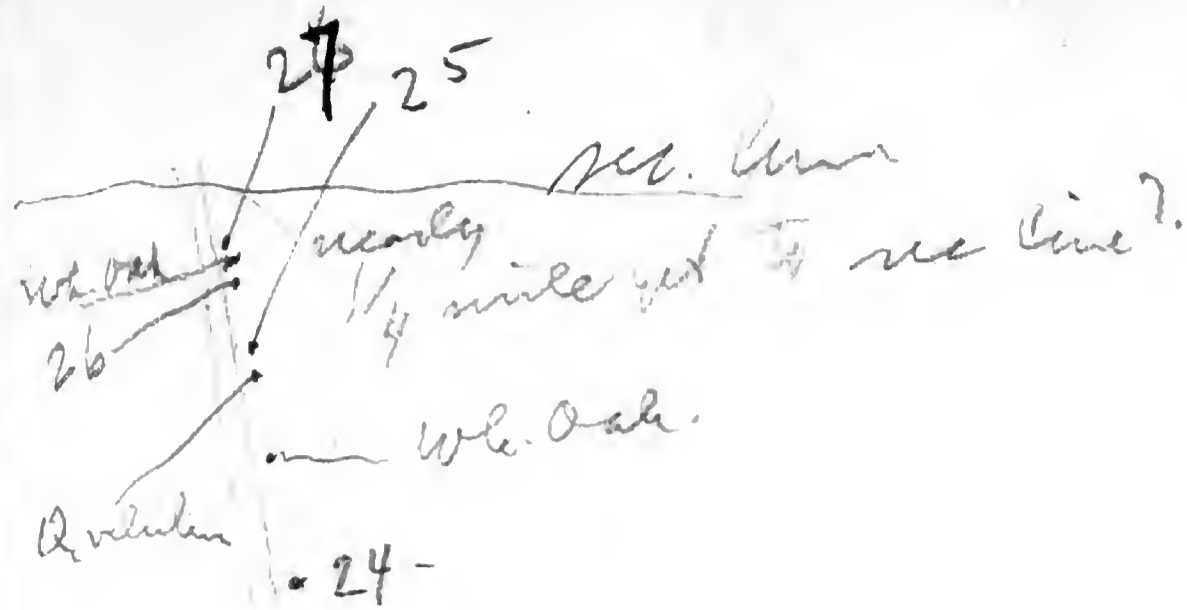 27 25
sec. line
nearly
wh. oak
1/4 mile yet to sec line?
26
Wh. Oak.
Q. velutina
24 -